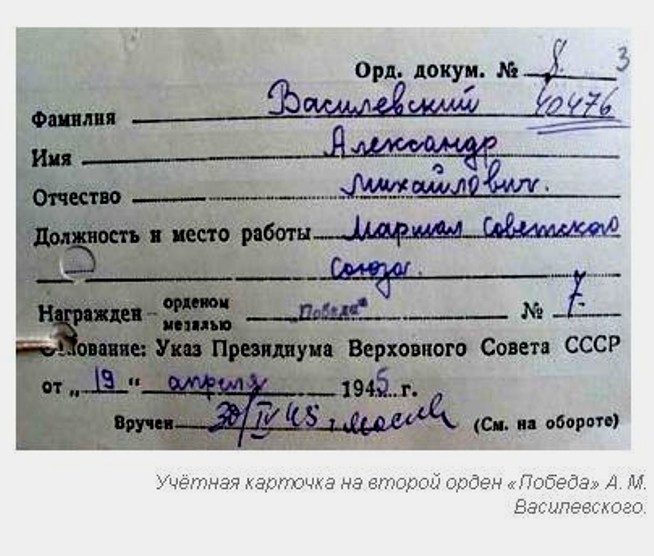 Орд. докум. № 8. 3
Фамилия Василевский 40476
Имя Александр
Отчество Михайлович.
Должность и место работы Маршал Советского
Союза.
Награжден орденом медалью „Победа“ № 7.
Основание: Указ Президиума Верховного Совета СССР
от „19“ апреля 1945 г.
Вручен 30/IV 45 г. (См. на обороте)
Учётная карточка на второй орден «Победа» А. М.
Василевского.